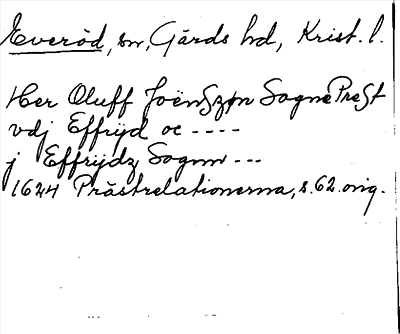 Everöd, sn, Gärds hd, Krist. l.
Her Oluff Joënszøn Sogne Prest
vdj Effrijd oc ----
j Effrijdz Sognn ---
1624 Prästrelationerna, s. 62. orig.